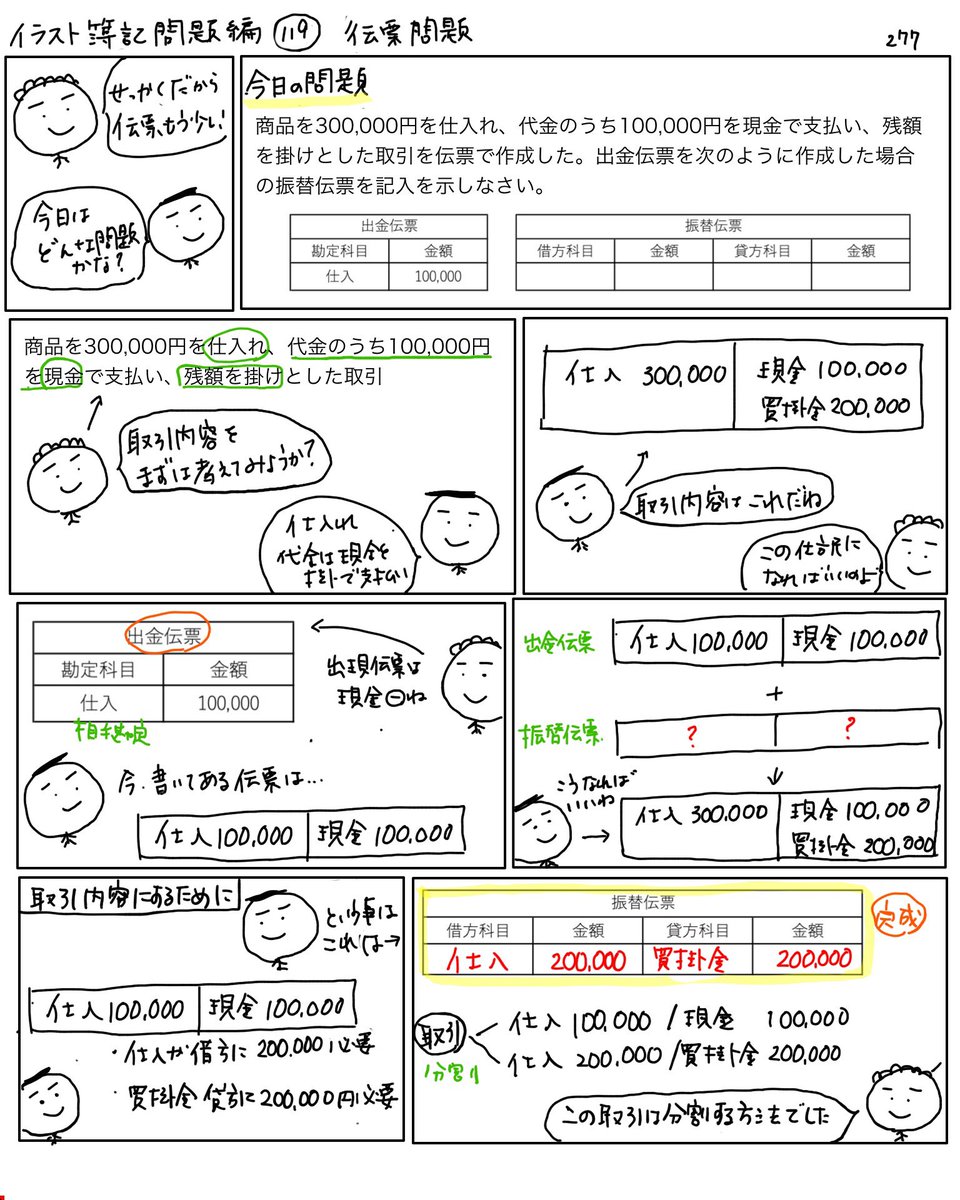 イラスト簿記問題編 119 伝票問題
277
せっかくだから
伝票、もう少し!
今日は
どんな問題
かな?
今日の問題
商品を300,000円を仕入れ、代金のうち100,000円を現金で支払い、残額
を掛けとした取引を伝票で作成した。出金伝票を次のように作成した場合
の振替伝票を記入を示しなさい。
出金伝票
勘定科目 金額
仕入 100,000
振替伝票
借方科目 金額 貸方科目 金額
商品を300,000円を仕入れ、代金のうち100,000円
を現金で支払い、残額を掛けとした取引
取引内容を
まずは考えてみようか?
仕入れ
代金は現金と
掛けで支払い
仕入 300,000 現金 100,000
買掛金 200,000
取引内容はこれだね
この仕訳に
なればいいのよ
出金伝票
勘定科目 金額
仕入 100,000
相手勘定
出現伝票は
現金⊖ね
今、書いてある伝票は...
仕入 100,000 現金 100,000
出金伝票 仕入 100,000 現金 100,000
+
振替伝票 ? ?
こうなれば
いいね
仕入 300,000 現金 100,000
買掛金 200,000
取引内容にあるために
という事は
これは→
仕入 100,000 現金 100,000
・仕入が借方に 200.000 必要
・買掛金 貸方に 200,000円必要
振替伝票
借方科目 金額 貸方科目 金額
仕入 200,000 買掛金 200,000
完成
取引
分割
仕入 100,000 / 現金 100,000
仕入 200,000 / 買掛金 200,000
この取引は分割する方法でした